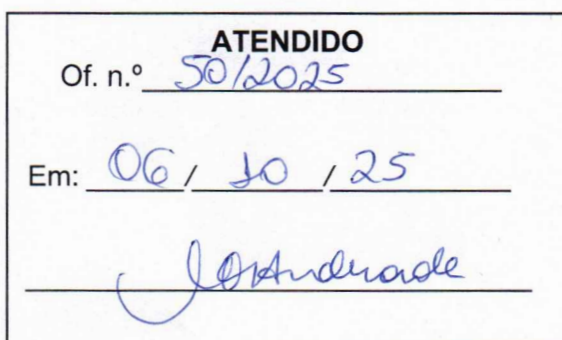 ATENDIDO
Of. n.º 50/2025
Em: 06 / 10 / 25
Andrade